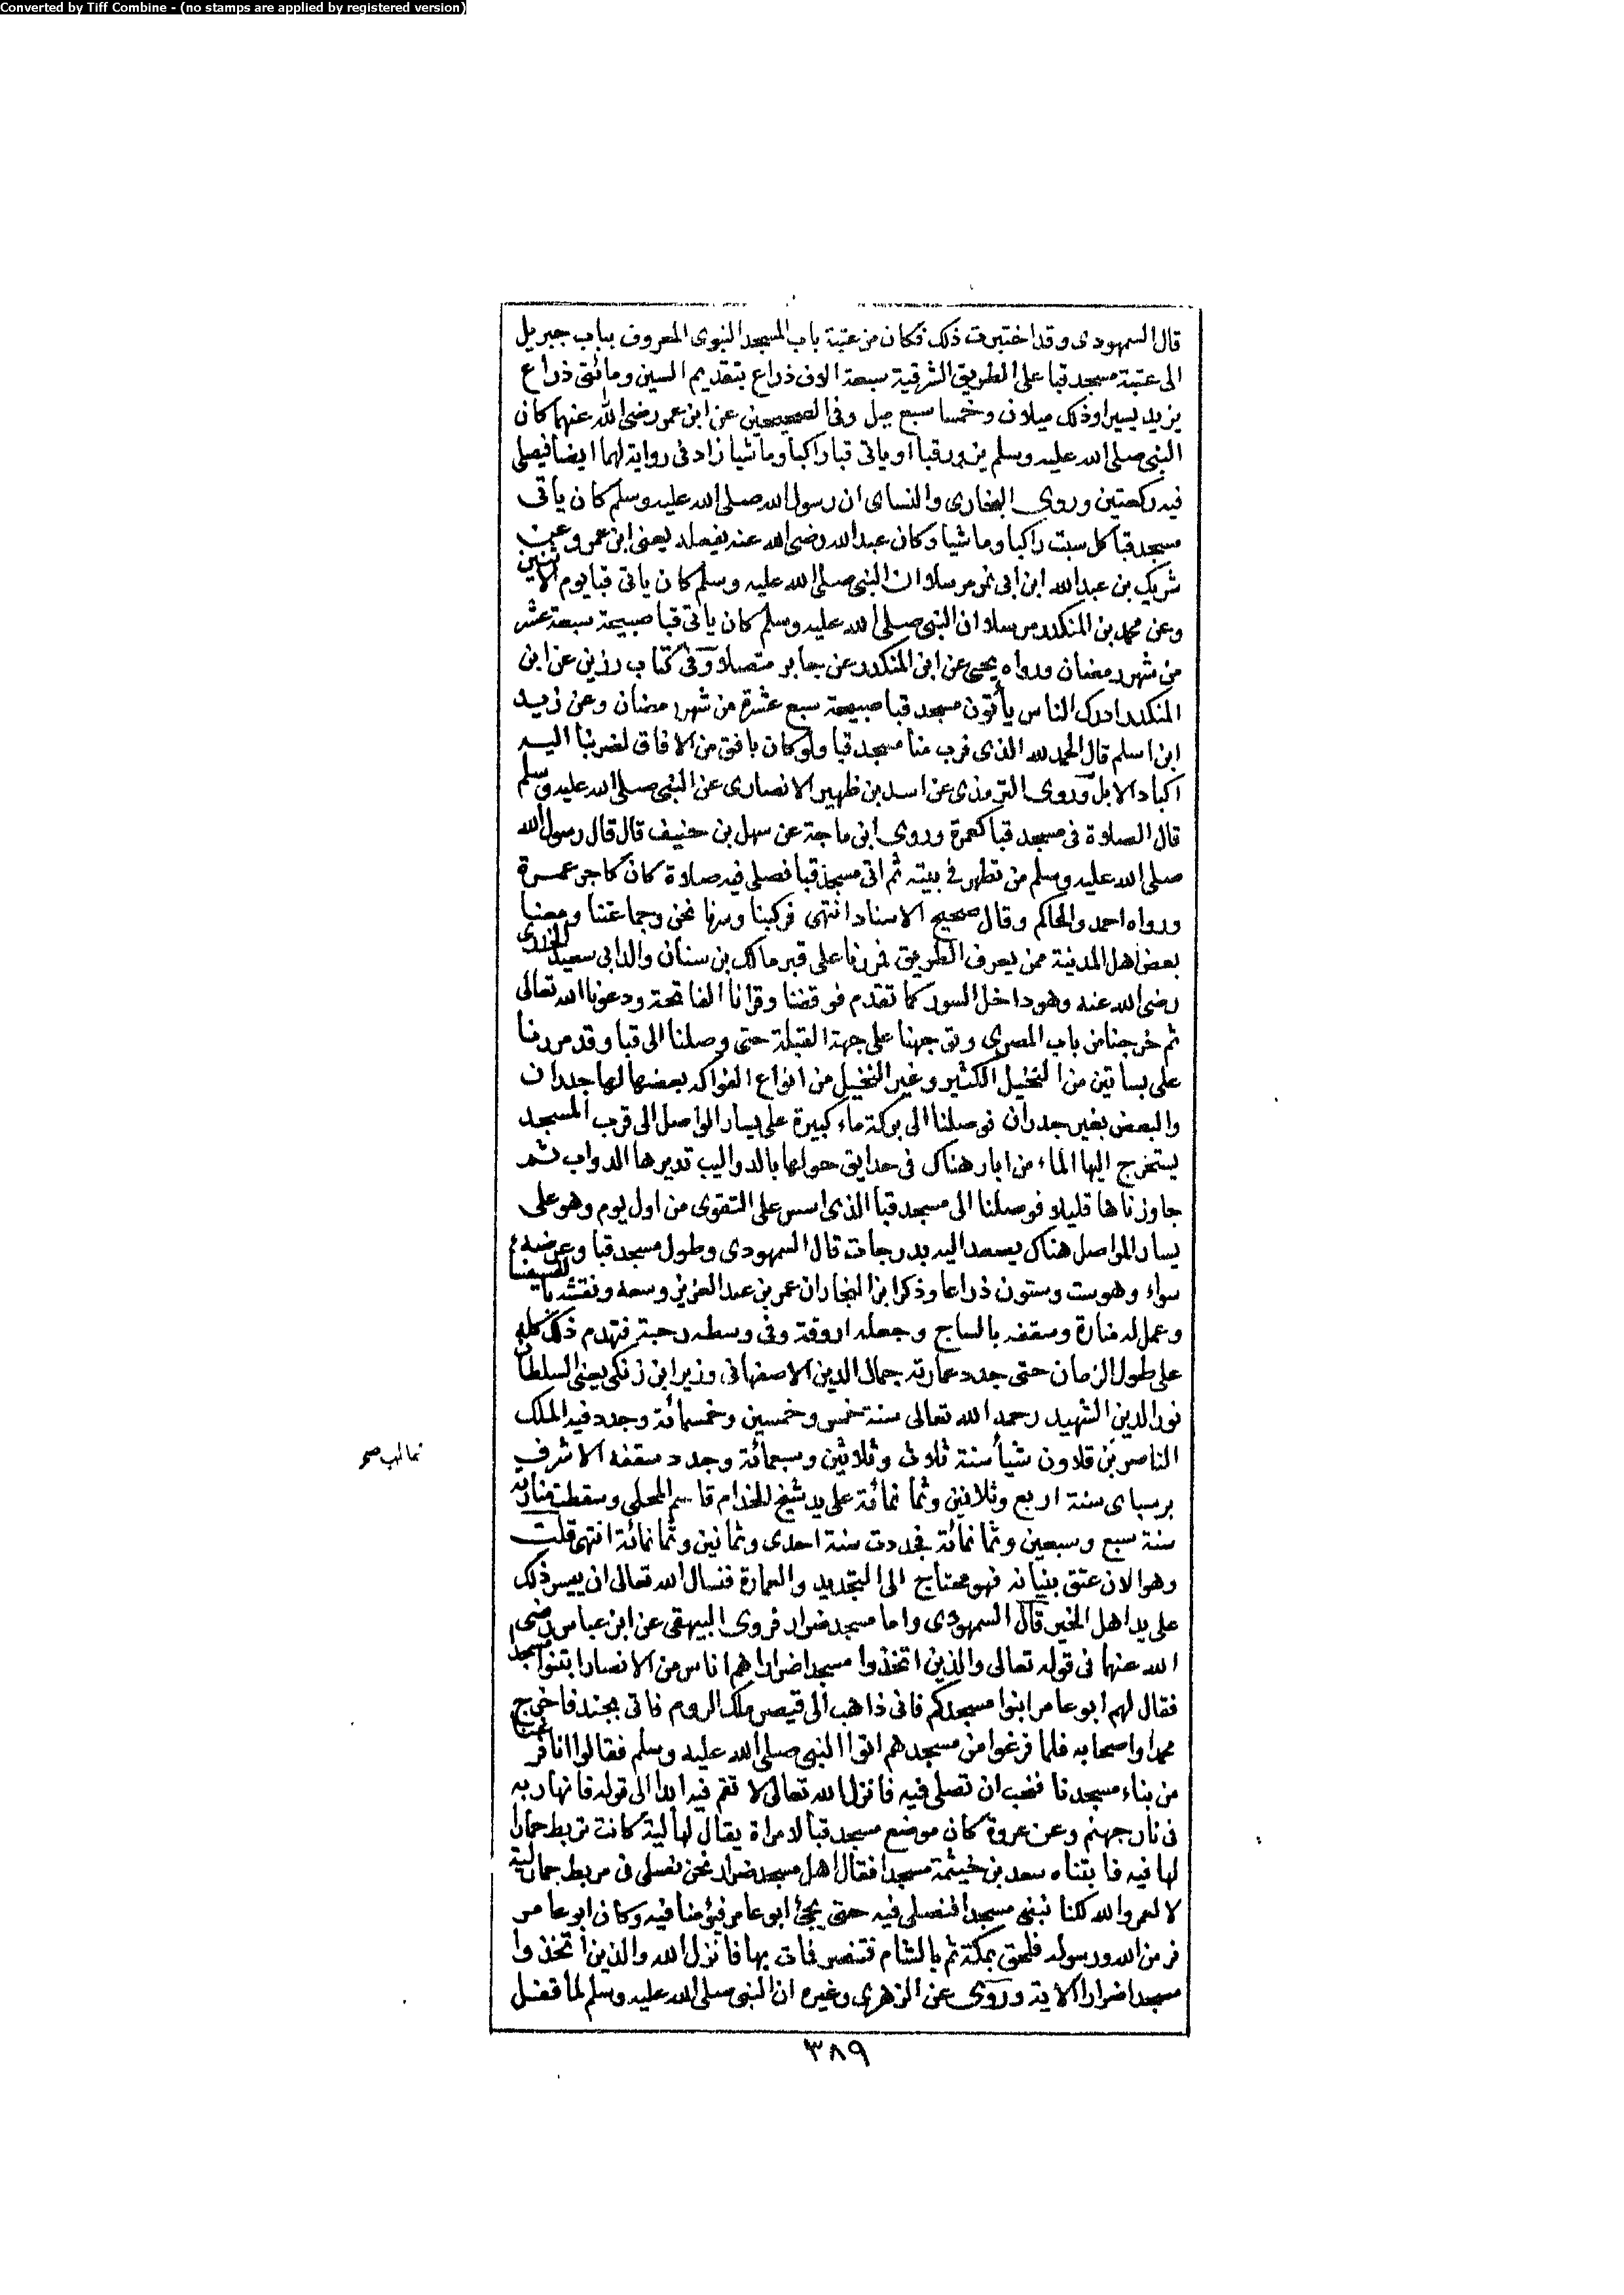 Converted by Tiff Combine - (no stamps are applied by registered version)
قال السمهودى وقد اختبرت ذلك فكان من عتبة باب المسجد النبوى المعروف بباب جبريل
الى عتبة مسجد قبا على الطريق الشرقية سبعة الاف ذراع بتقديم السين ومائتى ذراع
يزيد يسيرا وذلك ميلان وخمسا سبع ميل وفى الصحيحين عن ابن عمر رضى الله عنهما كان
النبى صلى الله عليه وسلم يزور قبا او ياتى قبا راكبا وماشيا زاد فى رواية لهما ايضا فيصلى
فيه ركعتين وروى البخارى والنساى ان رسول الله صلى الله عليه وسلم كان ياتى
مسجد قبا كل سبت راكبا وماشيا وكان عبد الله رضى الله عنه يفعله يعنى ابن عمر وعن
شريك بن عبد الله ابن ابى نمر مرسلا ان النبى صلى الله عليه وسلم كان ياتى قبا يوم الاثنين
وعن محمد بن المنكدر مرسلا ان النبى صلى الله عليه وسلم كان ياتى قبا صبيحة سبعة عشر
من شهر رمضان ورواه يحيى عن ابن المنكدر عن جابر متصلا وفى كتاب رزين عن ابن
المنكدر ادرك الناس يأتون مسجد قبا صبيحة سبع عشرة من شهر رمضان وعن زيد
ابن اسلم قال الحمد لله الذى قرب منا مسجد قبا ولو كان بافق من الافاق لضربنا اليه
اكباد الابل وروى الترمذى عن اسد بن ظهير الانصارى عن النبى صلى الله عليه وسلم
قال الصلاة فى مسجد قبا كعمرة وروى ابن ماجة عن سهل بن حنيف قال قال رسول الله
صلى الله عليه وسلم من تطهر فى بيته ثم اتى مسجد قبا فصلى فيه صلاة كان كاجر عمرة
ورواه احمد والحاكم وقال صحيح الاسناد انتهى فركبنا وسرنا نحن وجماعتنا ومعنا
بعض اهل المدينة ممن يعرف الطريق فمررنا على قبر مالك بن سنان والد ابى سعيد الخدرى
رضى الله عنه وهو داخل السور كما تقدم فوقفنا وقرانا الفاتحة ودعونا الله تعالى
ثم خرجنا من باب المصرى وتوجهنا على جهة القبلة حتى وصلنا الى قبا وقد مررنا
على بساتين من النخيل الكثير وغير النخيل من انواع الفواكه بعضها لها جدران
والبعض بغير جدران فوصلنا الى بركة ماء كبيرة على يسار الواصل الى قرب المسجد
يستخرج اليها الماء من ابار هناك فى حدايق حولها بالدواليب تديرها الدواب ثم
جاوزناها قليلا فوصلنا الى مسجد قبا الذى اسس على التقوى من اول يوم وهو على
يسار الواصل هناك يصعد اليه بدرجات قال السمهودى وطول مسجد قبا وعرضه
سواء وهو ست وستون ذراعا وذكر ابن النجار ان عمر بن عبد العزيز وسعه ونقشه بالفسيفسا
وعمل له منارة وسقفه بالساج وجعله اروقة وفى وسطه رحبة فتهدم ذلك كله
على طول الزمان حتى جدد عمارته جمال الدين الاصفهانى وزير ابن زنكى يعنى السلطان
نور الدين الشهيد رحمه الله تعالى سنة خمس وخمسين وخمسمائة وجدد فيه الملك
الناصر بن قلاون شيأ سنة ثلاث وثلاثين وسبعمائة وجدد سقفه الاشرف
برسباى سنة اربع وثلاثين وثما نمائة على يد شيخ الخدام قاسم المحلى وسقطت منارته
سنة سبع وسبعين وثما نمائة فجددت سنة احدى وثمانين وثما نمائة انتهى قلت
وهو الان عتق بنيانه فهو محتاج الى التجديد والعمارة فنسال الله تعالى ان ييسر ذلك
على يد اهل الخير قال السمهودى واما مسجد ضرار فروى البيهقى عن ابن عباس رضى
الله عنهما فى قوله تعالى والذين اتخذوا مسجدا ضرارا هم اناس من الانصار ابتنوا مسجدا
فقال لهم ابو عامر ابنوا مسجدكم فانى ذاهب الى قيصر ملك الروم فاتى بجند فاخرج
محمدا واصحابه فلما فرغوا من مسجدهم اتوا النبى صلى الله عليه وسلم فقالوا انا فرغنا
من بناء مسجدنا فنحب ان تصلى فيه فانزل الله تعالى لا تقم فيه ابدا الى قوله فانهار به
فى نار جهنم وعن عروة كان موضع مسجد قبا لامراة يقال لها لية كانت تربط حمارا
لها فيه فابتناه سعد بن خيثمة مسجدا فقال اهل مسجد ضرار نحن نصلى فى مربط حمار لية
لا لعمر الله لكنا نبنى مسجدا فنصلى فيه حتى يجئ ابو عامر فيؤمنا فيه وكان ابو عامر
فر من الله ورسوله فلحق بمكة ثم بالشام فتنصر فمات بها فانزل الله والذين اتخذوا
مسجدا ضرارا الاية وروى عن الزهرى وغيره ان النبى صلى الله عليه وسلم لما قفل
٣٨٩